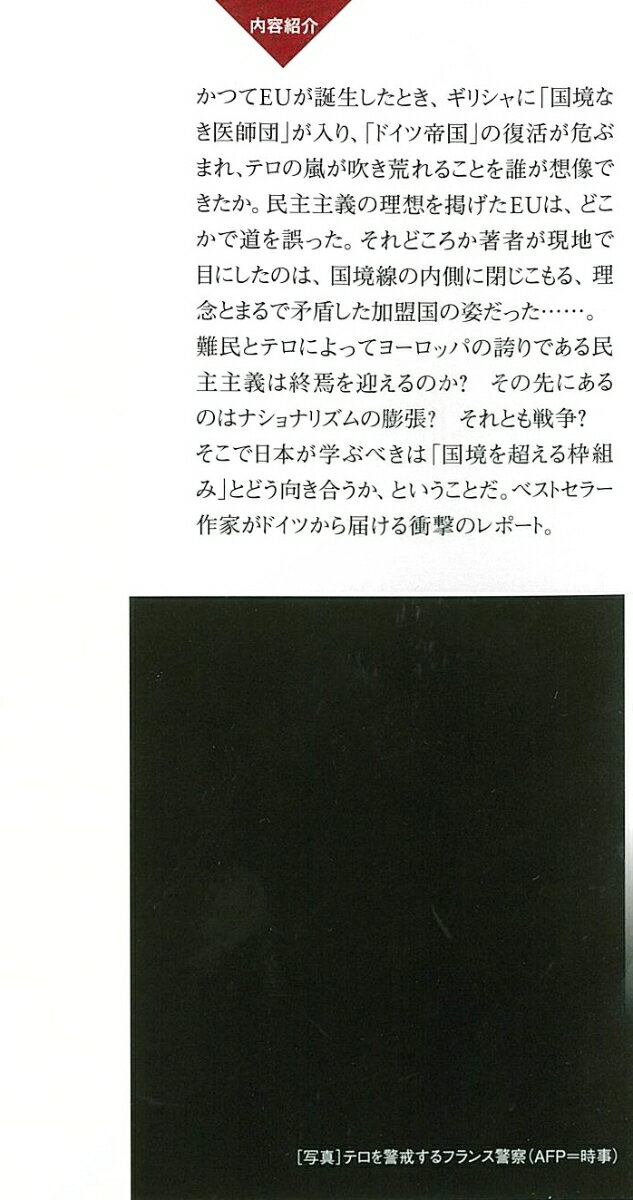 内容紹介
かつてEUが誕生したとき、ギリシャに「国境な
き医師団」が入り、「ドイツ帝国」の復活が危ぶ
まれ、テロの嵐が吹き荒れることを誰が想像で
きたか。民主主義の理想を掲げたEUは、どこ
かで道を誤った。それどころか著者が現地で
目にしたのは、国境線の内側に閉じこもる、理
念とまるで矛盾した加盟国の姿だった……。
難民とテロによってヨーロッパの誇りである民
主主義は終焉を迎えるのか?　その先にある
のはナショナリズムの膨張?　それとも戦争?
そこで日本が学ぶべきは「国境を超える枠組
み」とどう向き合うか、ということだ。ベストセラー
作家がドイツから届ける衝撃のレポート。
[写真]テロを警戒するフランス警察(AFP=時事)